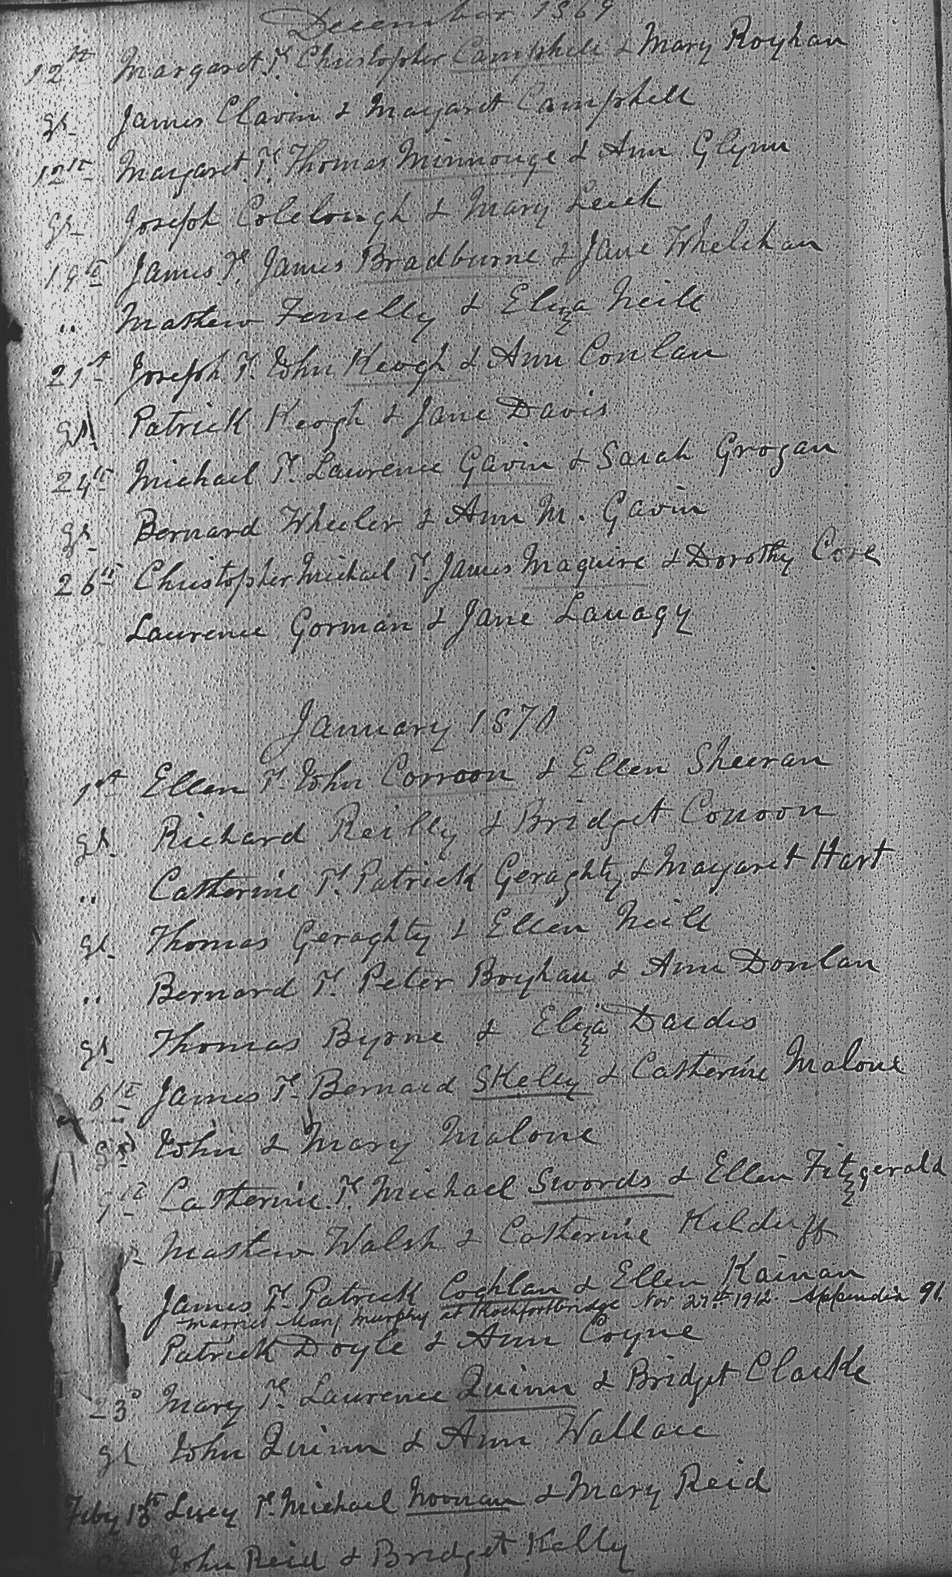 December 1869
12th Margaret T. Christopher Campbell & Mary Royhan
gs. James Clavin & Margaret Campbell
12th Margaret T. Thomas Minnouge & Ann Glynn
gs. Joseph Colclough & Mary Leech
19th James T. James Bradburne & Jane Whelehan
" Mathew Fennelly & Eliza Neill
21st Joseph T. John Keogh & Ann Conlan
gs. Patrick Keogh & Jane Davis
24th Michael T. Laurence Gavin & Sarah Grogan
gs. Bernard Wheeler & Ann M. Gavin
26th Christopher Michael T. James Maguire & Dorothy Core
Laurence Gorman & Jane Lavagy
January 1870
1st Ellen T. John Corroon & Ellen Sheeran
gs. Richard Reilly & Bridget Conoon
" Catherine T. Patrick Geraghty & Margaret Hart
gs. Thomas Geraghty & Ellen Neill
" Bernard T. Peter Boyhan & Ann Donlan
gs. Thomas Byrne & Eliza Dardis
6th James T. Bernard Skelly & Catherine Malone
gs. John & Mary Malone
9th Catherine T. Michael Swords & Ellen Fitzgerald
Mathew Walsh & Catherine Kilduff
James T. Patrick Coghlan & Ellen Kainan
married Mary Murphy at Rochfortbridge Nov 27th 1912. Appendix 91.
Patrick Doyle & Ann Coyne
23d Mary T. Laurence Quinn & Bridget Clarke
gs John Quinn & Ann Wallace
Feby 13th Lucy T. Michael Noonan & Mary Reid
John Reid & Bridget Kelly